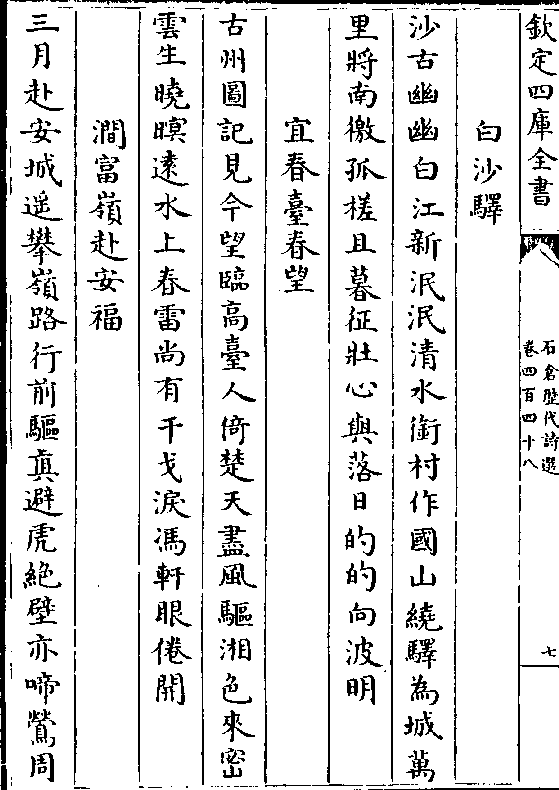 欽定四庫全書
石倉歴代詩選
卷四百四十八
七
白沙驛
沙古幽幽白江新泯泯清水衝村作國山繞驛為城萬
里將南徼孤槎且暮征壯心與落日的的向波明
宜春臺春望
古州圖記見今望臨高臺人倚楚天盡風驅湘色來密
雲生曉暝逺水上春雷尚有干戈淚馮軒眼倦開
澗富嶺赴安福
三月赴安城遥攀嶺路行前驅真避虎絶壁亦啼鶯周